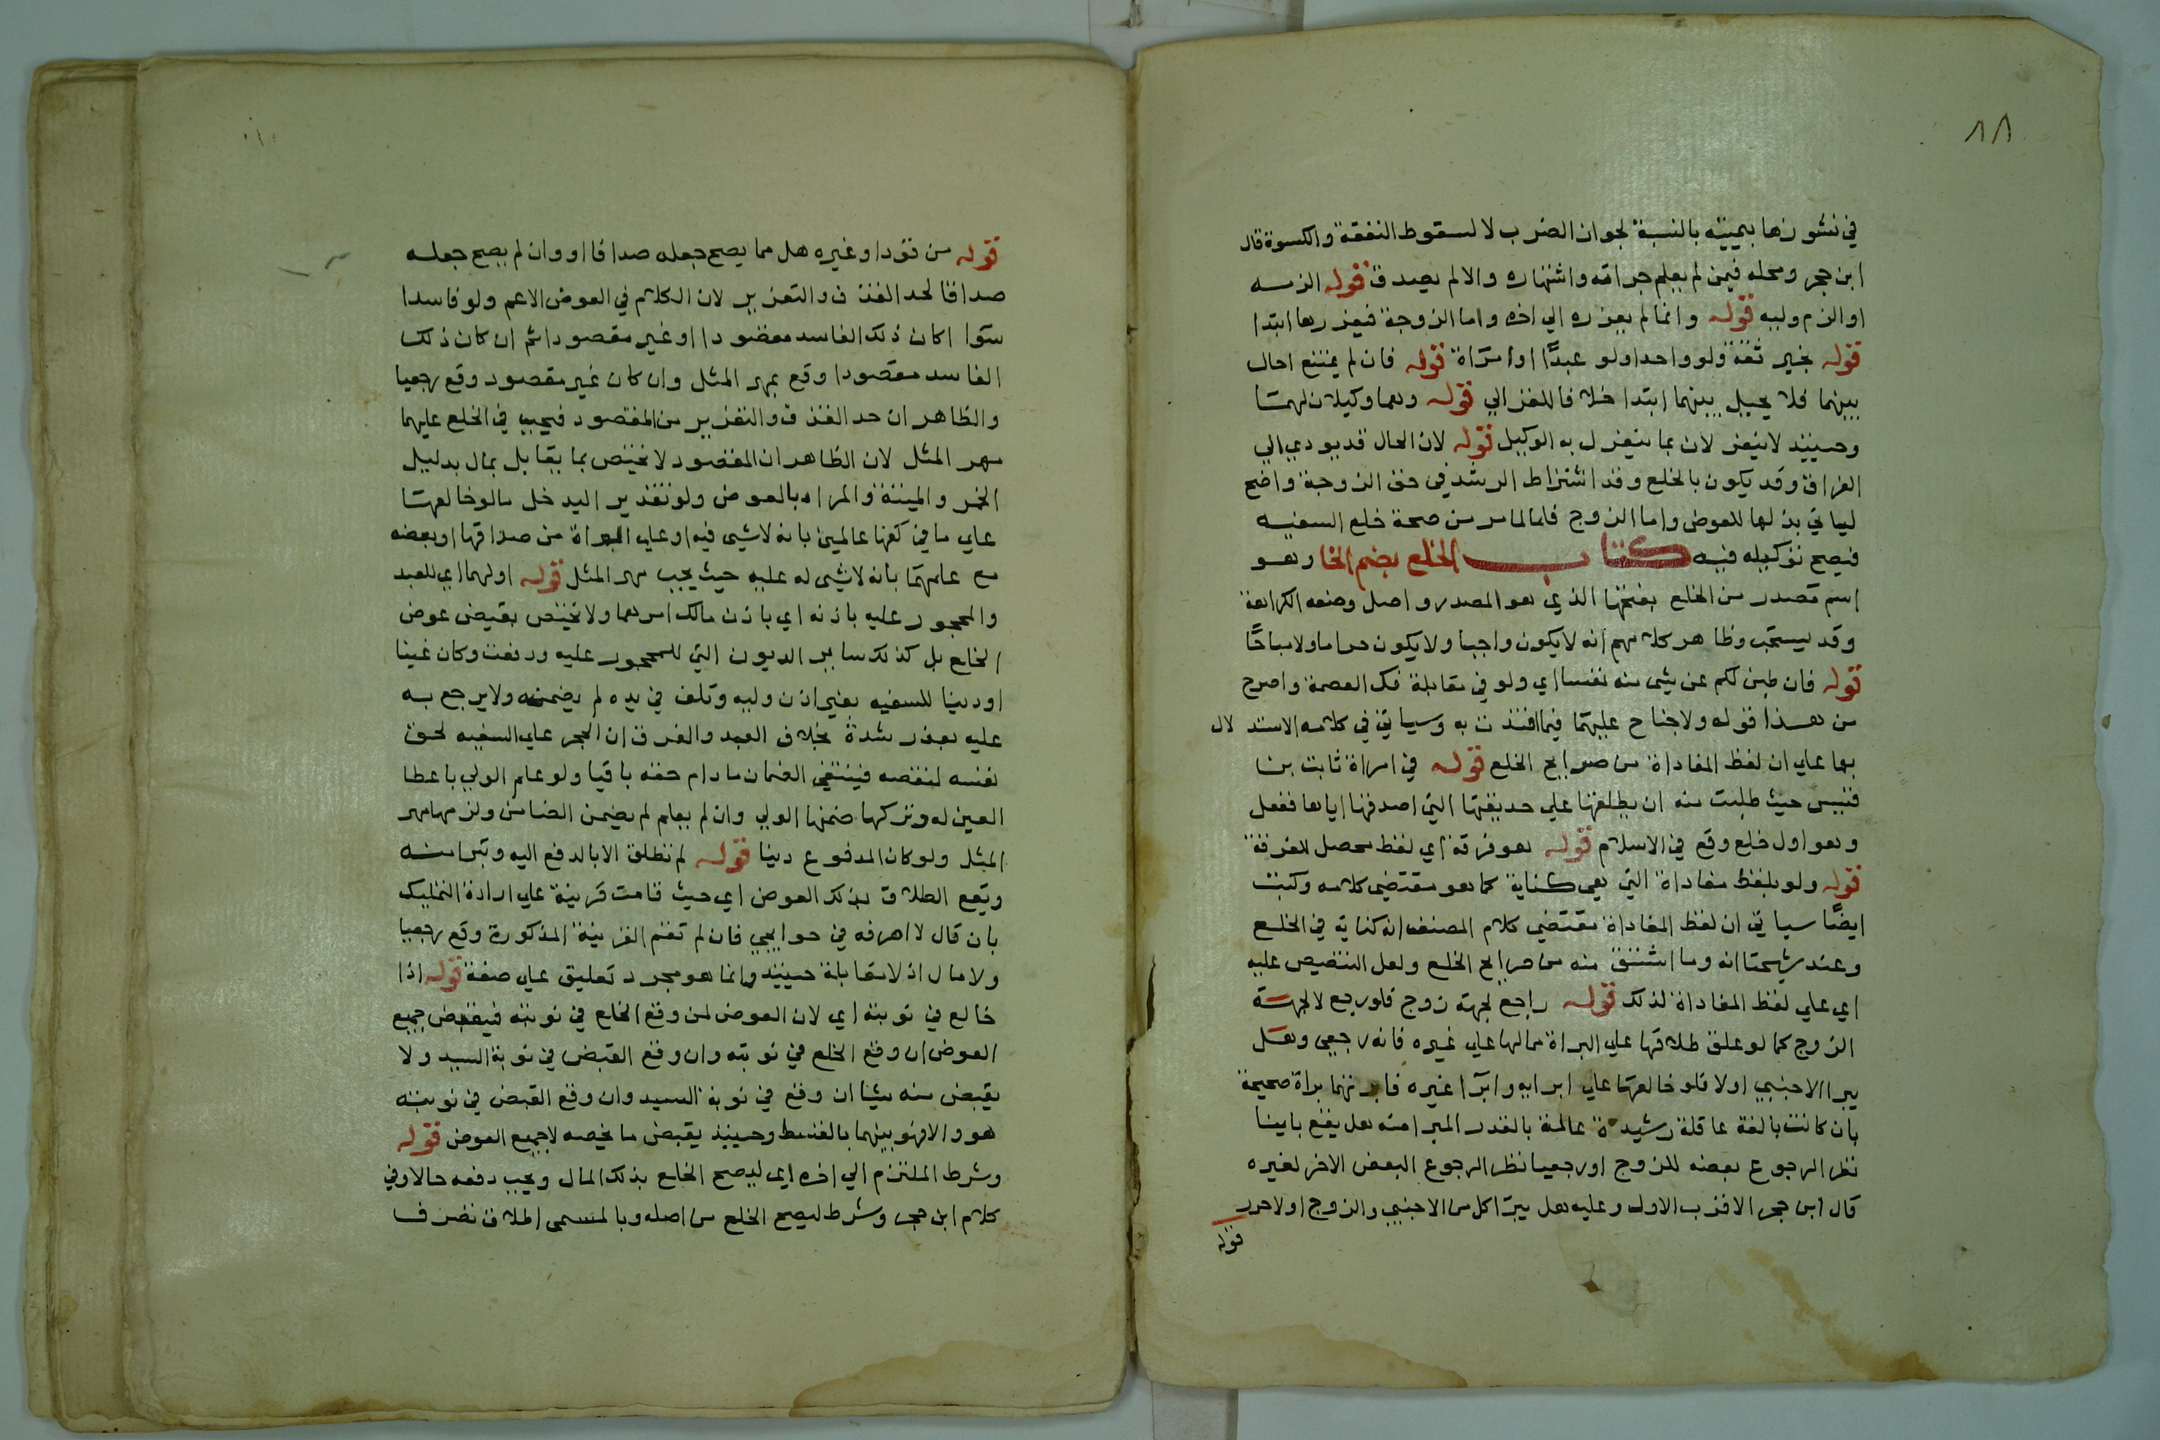 ٨٨
في نشوزها بيمينه بالنسبة لجواز الضرب لا لسقوط النفقة والكسوة قال
ابن حجر ومحله فيمن لم يعلم جراته واشتهاره والا لم يصدق قوله الزمه
او الزم وليه قوله وانما لم يعزره الي اخره واما الزوجة فيعزرها ابتدا
قوله بخبر ثقة ولو واحدا ولو عبدًا او امرآة قوله فان لم يمتنع احال
بينهما فلا يحيل بينهما ابتدا خلافا للغزالي قوله وهما وكيلان لهما
وحينيذ لا ينعزلان بما ينعزل به الوكيل قوله لان الحال قد يودي الي
الفراق وقد يكون بالخلع وقد اشتراط الرشد في حق الزوجة واضح
لياتي بذلها للعوض واما الزوج فلما مر من صحة خلع السفيه
فيصح توكيله فيه كتاب الخلع بضم الخا وهو
اسم مصدر من الخلع بفتحها الذي هو المصدر واصل وضعه الكراهة
وقد يستحب وظاهر كلامهم انه لا يكون واجبا ولا يكون حراما ولا مباحًا
قوله فان طبن لكم عن شي منه نفسا اي ولو في مقابلة فك العصمة واصرح
من هذا قوله ولا جناح عليهما فيما افتدت به وسياتي في كلامه الاستدلال
بها علي ان لفظ المفاداة من صرايح الخلع قوله في امراة ثابت بن
قيس حيث طلبت منه ان يطلقها علي حديقتها التي اصدقها اياها ففعل
وهو اول خلع وقع في الاسلام قوله هو فرقة اي لفظ محصل للفرقة
قوله ولو بلفظ مفاداة التي هي كناية كما هو مقتضي كلامه وكتبت
ايضًا سياتي ان لفظ المفاداة مقتضي كلام المصنف انه كناية في الخلع
وعند شيخنا انه وما اشتق منه من صرايح الخلع ولعل التنصيص عليه
اي علي لفظ المفاداة لذلك قوله راجع لجهة زوج فلو رجع لا لجهة
الزوج كما لو علق طلاقها علي البراة مما لها علي غيره فانه رجعي وهل
يبرا الاجنبي اولا فلو خالعها علي ابرايه وابرا غيره فابرتهما براة صحيحة
بان كانت بالغة عاقلة رشيدة عالمة بالقدر المبرا منه هل يقع باينا
نظر الرجوع بعضه للزوج او رجعيا نظر الرجوع البعض الاخر لغيره
قال ابن حجر الاقرب الاول وعليه هل يبرا كل من الاجنبي والزوج اولا حرر
قوله
قوله من قود او غيره هل مما يصح جعله صداقا او وان لم يصح جعله
صداقا لحد القذف والتعزير لان الكلام في العوض الاعم ولو فاسدا
سوا اكان ذلك الفاسد مقصودا او غير مقصود ثم ان كان ذلك
الفاسد مقصودا وقع بمهر المثل وان كان غير مقصود وقع رجعيا
والظاهر ان حد القذف والتعزير من المقصود فيجب في الخلع عليهما
مهر المثل لان الظاهر ان المقصود لا يختص بما يقابل بمال بدليل
الخمر والميتة والمراد بالعوض ولو تقدير اليدخل ما لو خالعها
علي ما في كفها عالمين بانه لا شي فيه او علي البراة من صداقها او بعضه
مع علمهما بانه لا شي له عليه حيث يجب مهر المثل قوله اولهما اي للعبد
والمحجور عليه باذنه اي باذن مالك امرهما ولا يختص بقبض عوض
الخلع بل كذلك ساير الديون التي للمحجور عليه ودفعت وكان عينا
او دينا للسفيه بغير اذن وليه وتلف في يده لم يضمنه ولا يرجع به
عليه بعد رشدة بخلاف العبد والفرق ان الحجر علي السفيه لحق
نفسه لنقصه فينتفي الضمان ما دام حقه باقيا ولو علم الولي باعطا
العين له وتركها ضمنها الولي وان لم يعلم لم يضمن الضامن ولزمها مهر
المثل ولو كان المدفوع دينا قوله لم تطلق الا بالدفع اليه وتبرا منه
ويقع الطلاق بذلك العوض اي حيث قامت قرينة علي ارادة التمليك
بان قال لا اصرفه في حوايجي فان لم تقم القرينة المذكورة وقع رجعيا
ولا مال اذ لا مقابلة حينيذ وانما هو مجرد تعليق علي صفة قوله اذا
خالع في نوبته اي لان العوض لمن وقع الخلع في نوبته فيقبض جميع
العوض ان وقع الخلع في نوبته وان وقع القبض في نوبة السيد ولا
يقبض منه شيا ان وقع في نوبة السيد وان وقع القبض في نوبته
هو والا فهو بينهما بالقسط وحينيذ يقبض ما يخصه لا جميع العوض قوله
وشرط الملتزم الي اخره اي ليصح الخلع بذلك المال ويجب دفعه حالا وفي
كلام ابن حجر وشرط ليصح الخلع من اصله وبالمسمي اطلاق تصرف